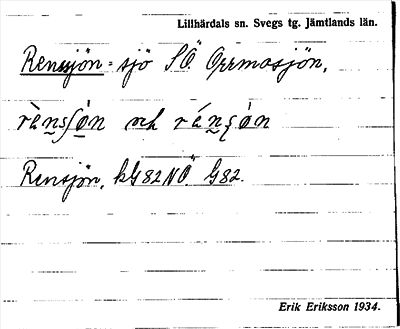 Lillhärdals sn. Svegs tg. Jämtlands län.
Renssjön = sjö SÖ Orrmosjön,
rènsʃòn och rénsʃòn
Rensjön, kG82NÖ. G82.
Erik Eriksson 1934.